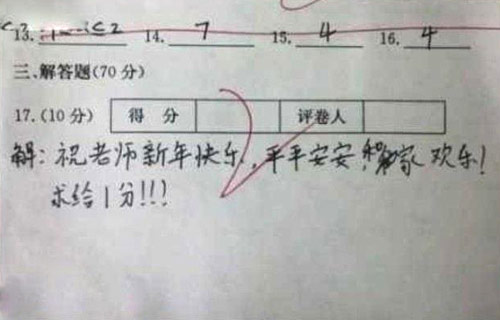 13. 1 2 14. 7 15. 4 16. 4
三、解答题(70分)
17.(10分) 得 分 评卷人
解：祝老师新年快乐，平平安安，家欢乐！
求给1分!!!